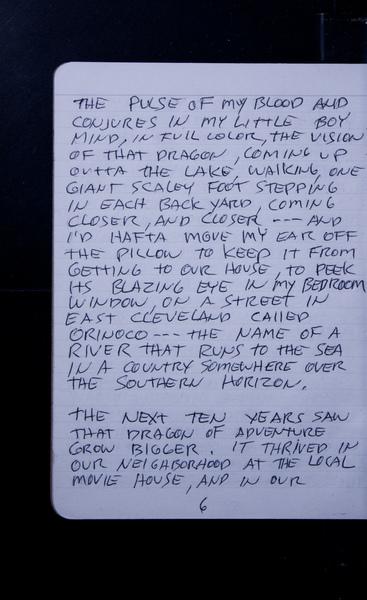 THE PULSE OF MY BLOOD AND
CONJURES IN MY LITTLE BOY
MIND, IN FULL COLOR, THE VISION
OF THAT DRAGON, COMING UP
OUTTA THE LAKE, WALKING, ONE
GIANT SCALEY FOOT STEPPING
IN EACH BACK YARD, COMING
CLOSER, AND CLOSER --- AND
I'D HAFTA MOVE MY EAR OFF
THE PILLOW TO KEEP IT FROM
GETTING TO OUR HOUSE, TO PEEK
ITS BLAZING EYE IN MY BEDROOM
WINDOW, ON A STREET IN
EAST CLEVELAND CALLED
ORINOCO --- THE NAME OF A
RIVER THAT RUNS TO THE SEA
IN A COUNTRY SOMEWHERE OVER
THE SOUTHERN HORIZON.
THE NEXT TEN YEARS SAW
THAT DRAGON OF ADVENTURE
GROW BIGGER. IT THRIVED IN
OUR NEIGHBORHOOD AT THE LOCAL
MOVIE HOUSE, AND IN OUR
6